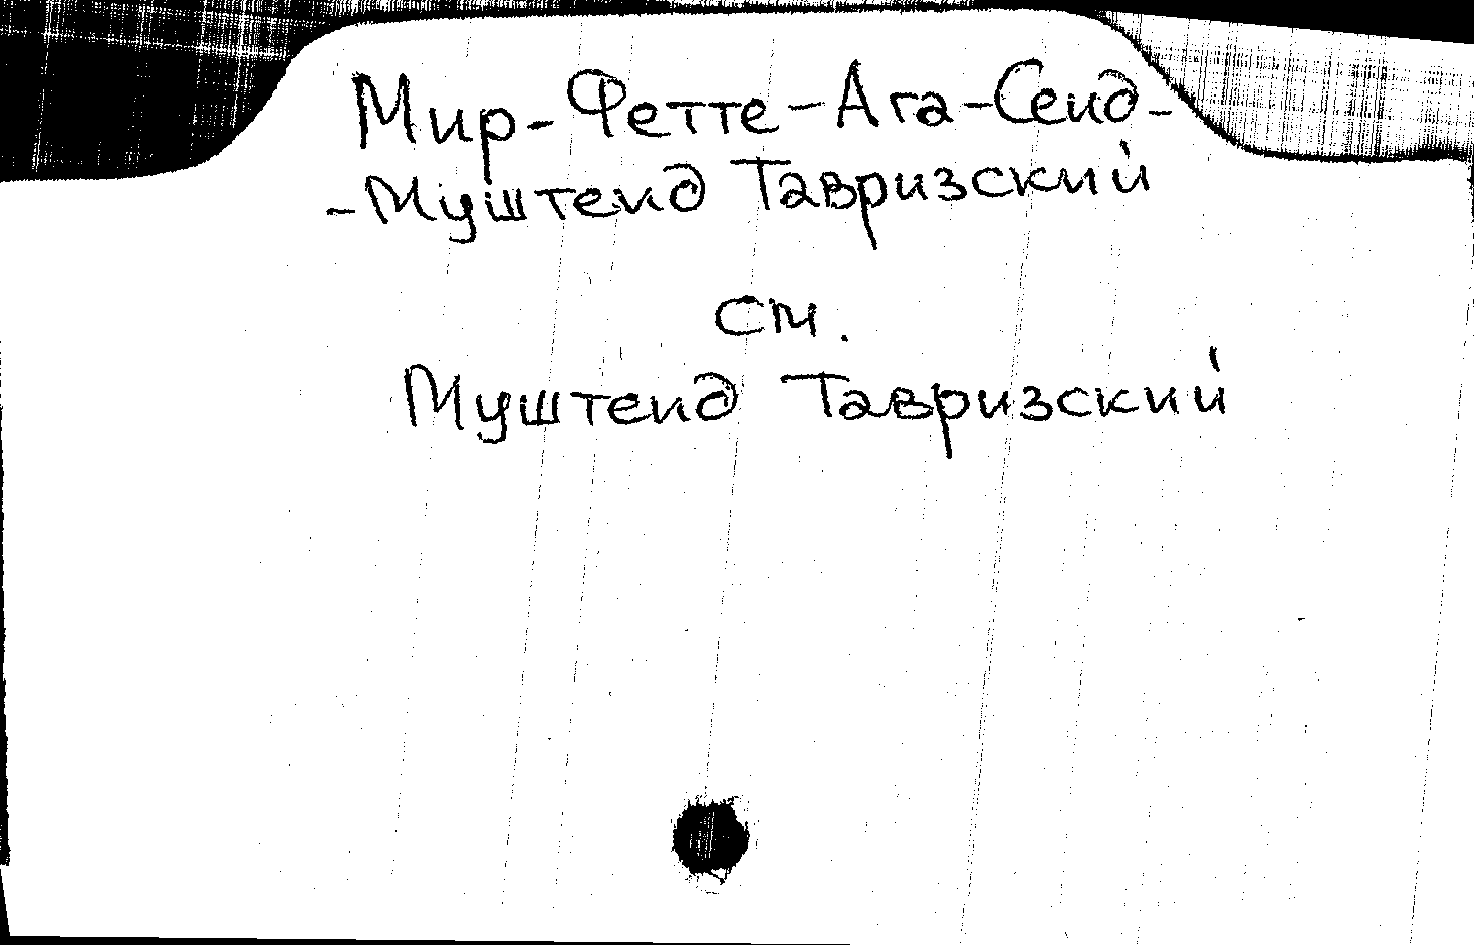 Мир-Фетте-Ага-Сеид-
-Муштеид Тавризский
см.
Муштеид Тавризский